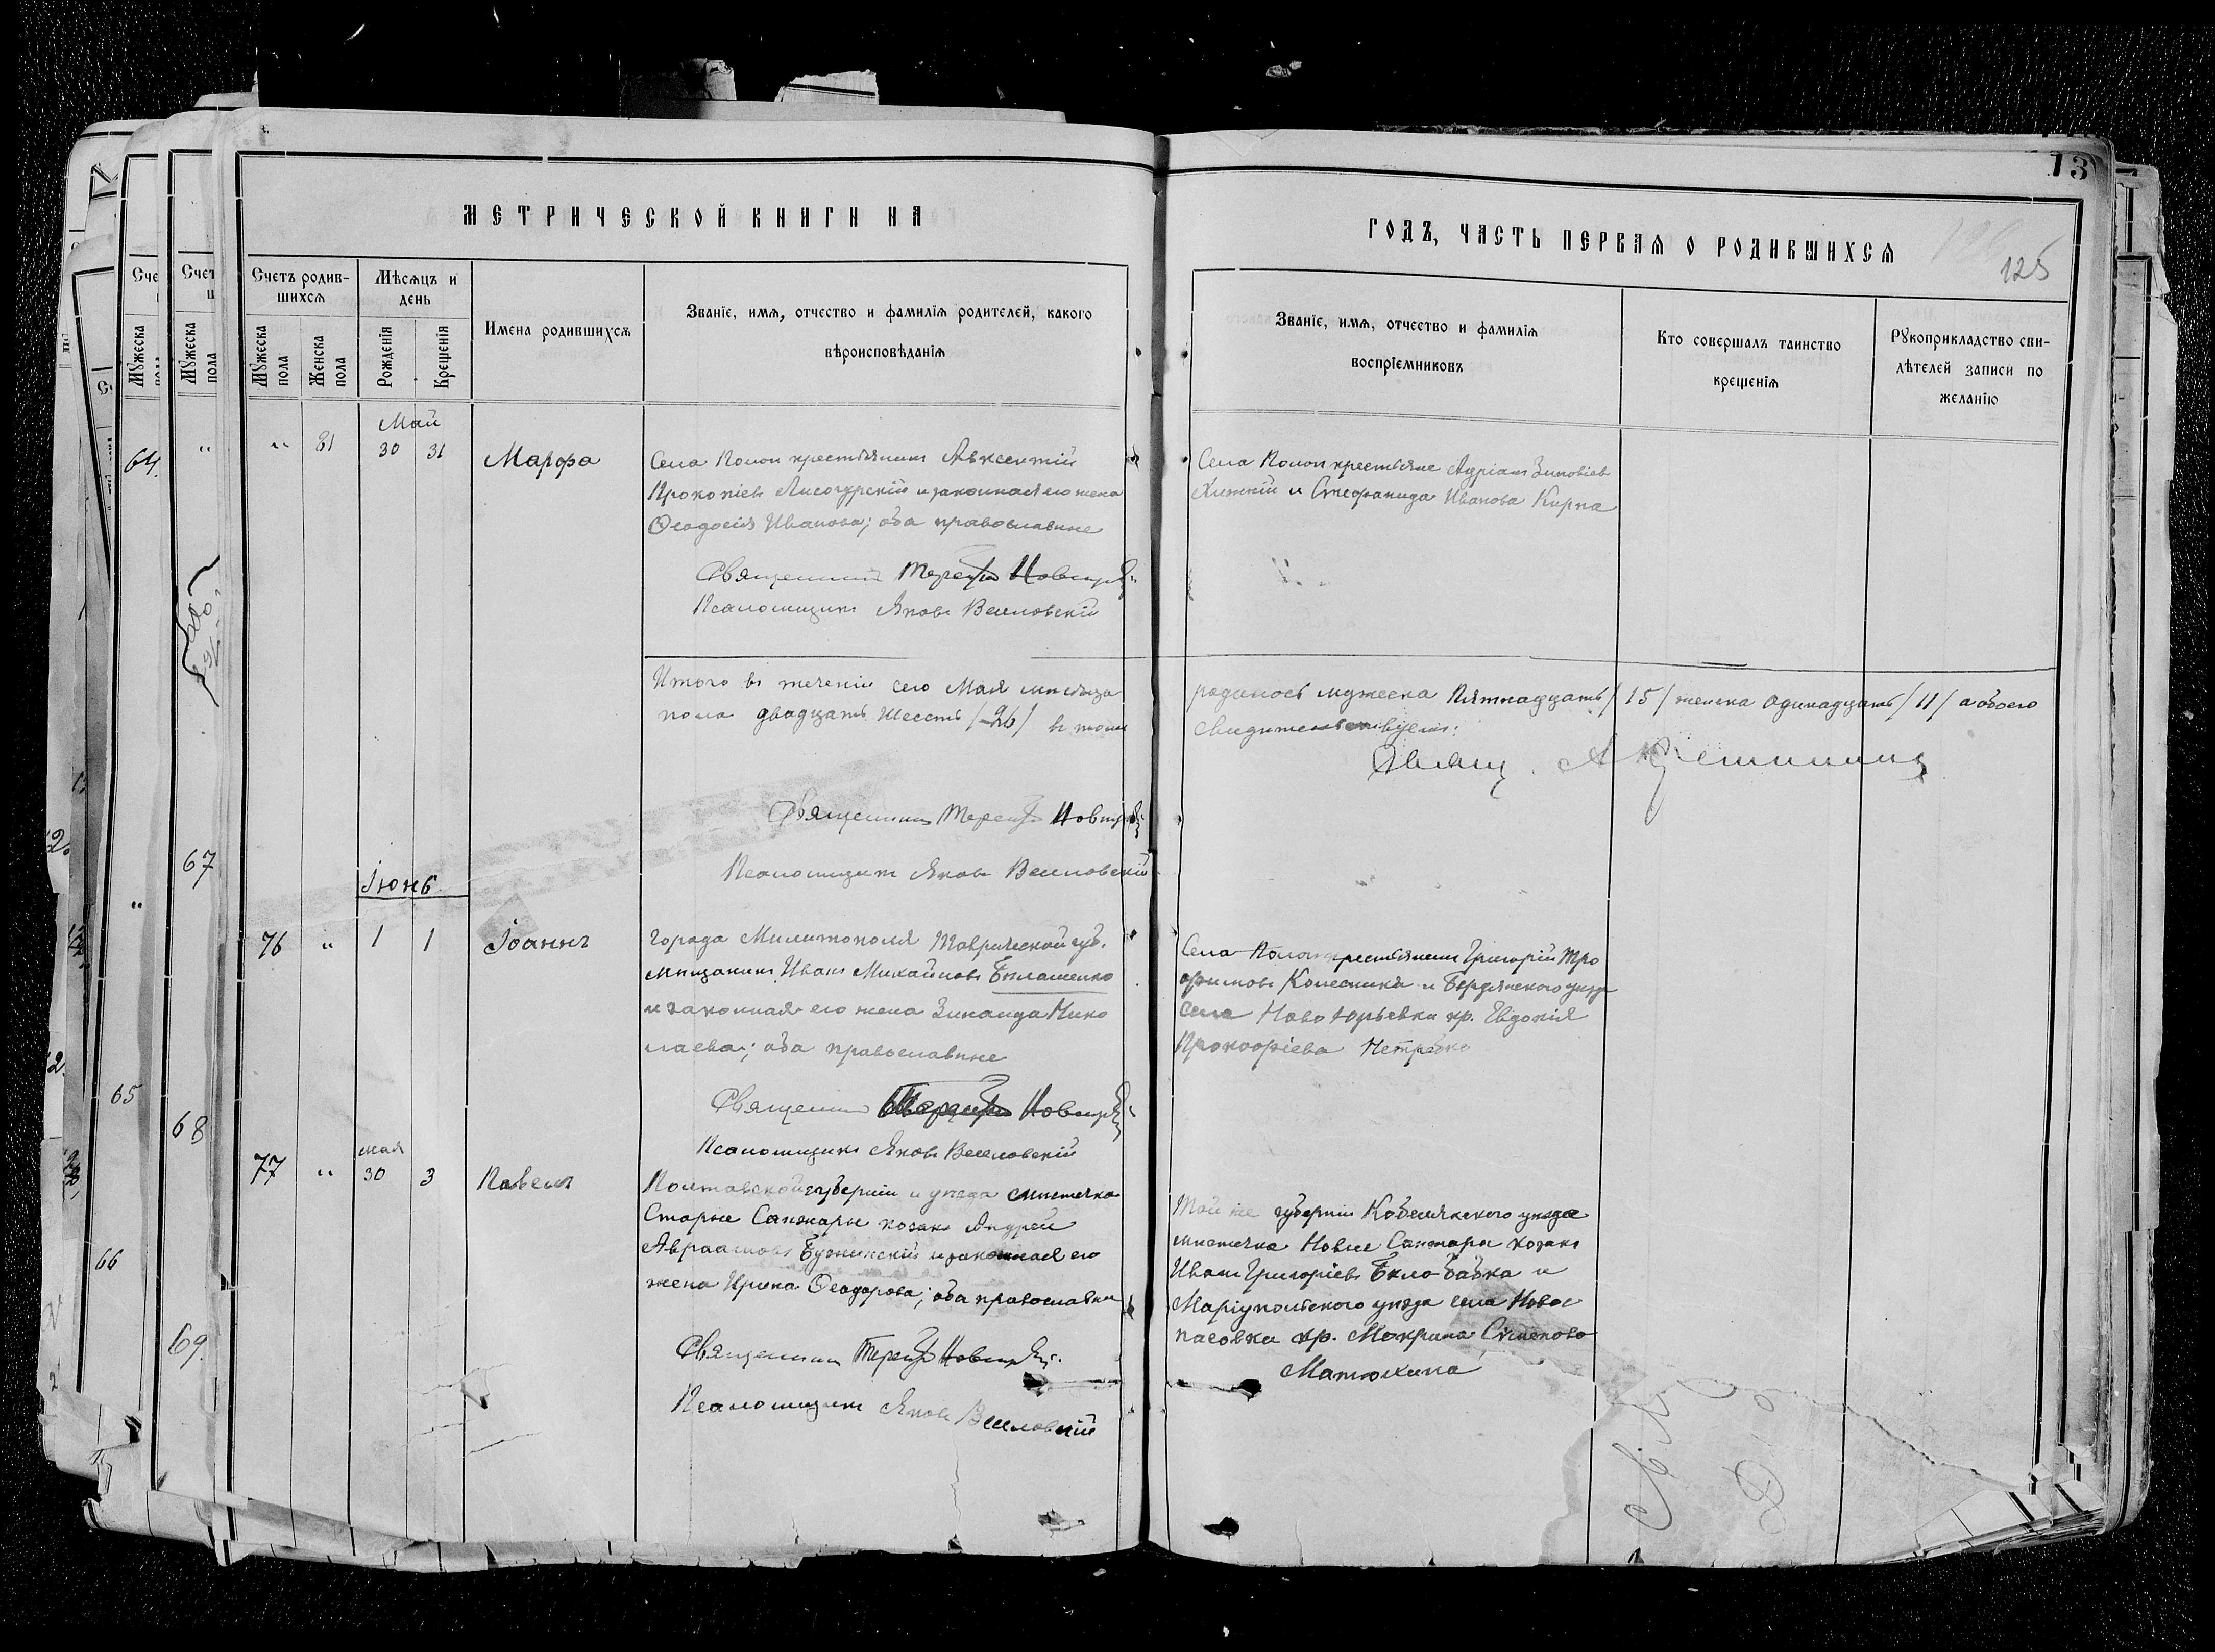 13
125
МЕТРИЧЕСКОЙ КНИГИ НА
ГОДЪ, ЧАСТЬ ПЕРВАЯ О РОДИВШИХСЯ
Счетъ родив-
шихся
Мужеска пола
Женска пола
Мѣсяцъ и
день
Рожденія
Крещенія
Имена родившихся
Званіе, имя, отчество и фамилія родителей, какого
вѣроисповѣданія
Званіе, имя, отчество и фамилія
воспріемниковъ
Кто совершалъ таинство
крещенія
Рукоприкладство сви-
дѣтелей записи по
желанію
Май
" 81 30 31 Марфа
Села Пологи крестьянинъ Авксентій
Прокопіевъ Лисогурскій и законная его жена
Ѳеодосія Иванова; оба православные
Священникъ Терентій Новицкій
Псаломщикъ Яковъ Веселовскій
Села Пологи крестьяне Адріанъ Зиновіевъ
и Стефанида Иванова Кирпа
Итого въ теченіи сего Мая мѣсяца
пола двадцать шесть /26/ въ томъ
родилось мужеска пятнадцать /15/ женска одинадцать /11/ а обоего
свидительствуемъ:
Свящ. А
Священникъ Терентій Новицкій
Псаломщикъ Яковъ Веселовскій
Іюнь
76 " 1 1 Іоаннъ
города Милитополя Таврической губ.
мѣщанинъ Иванъ Михайловъ Билашенко
и законная его жена Зинаида Нико
лаева; оба православные
Священникъ Терентій Новицкій
Псаломщикъ Яковъ Веселовскій
Села Пологи крестьянинъ Григорій Тро
фимовъ Колесникъ и Бердянского уезд
села Ново Юрьевки кр. Евдокія
Прокофіева Петренко
мая
77 " 30 3 Павелъ
Полтавской губерніи и уезда мистечка
Старые Санжары козакъ Андрей
Авраамовъ Бужинскій и законная его
жена Ирина Ѳеодорова; оба православны
Священникъ Терентій Новицкій
Псаломщикъ Яковъ Веселовскій
Той же губерніи Кобелякского уезда
мистечка Новые Санжары козакъ
Иванъ Григоріевъ Било-бабка и
Маріупольского уезда села Новос
пасовки кр. Макрина Симеонова
Матюхина
64
65
66
67
68
69.